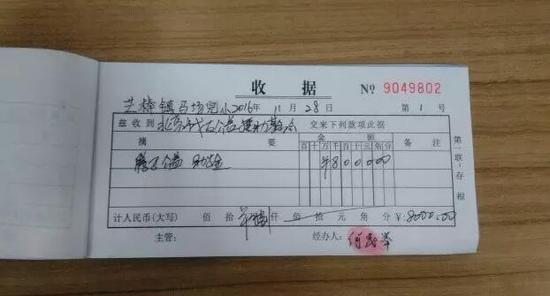 收据 № 9049802
芒棒镇马场完小2016年11月28日 第1号
兹收到 北京 公益援助基金会 交来下列款项此据
摘要 金额 备注
百十万千百十元角分
公益 助金 ¥800000
计人民币(大写) 佰拾 万捌仟 佰拾元角分 ¥:8000.00
主管: 经办人:
第一联:存根